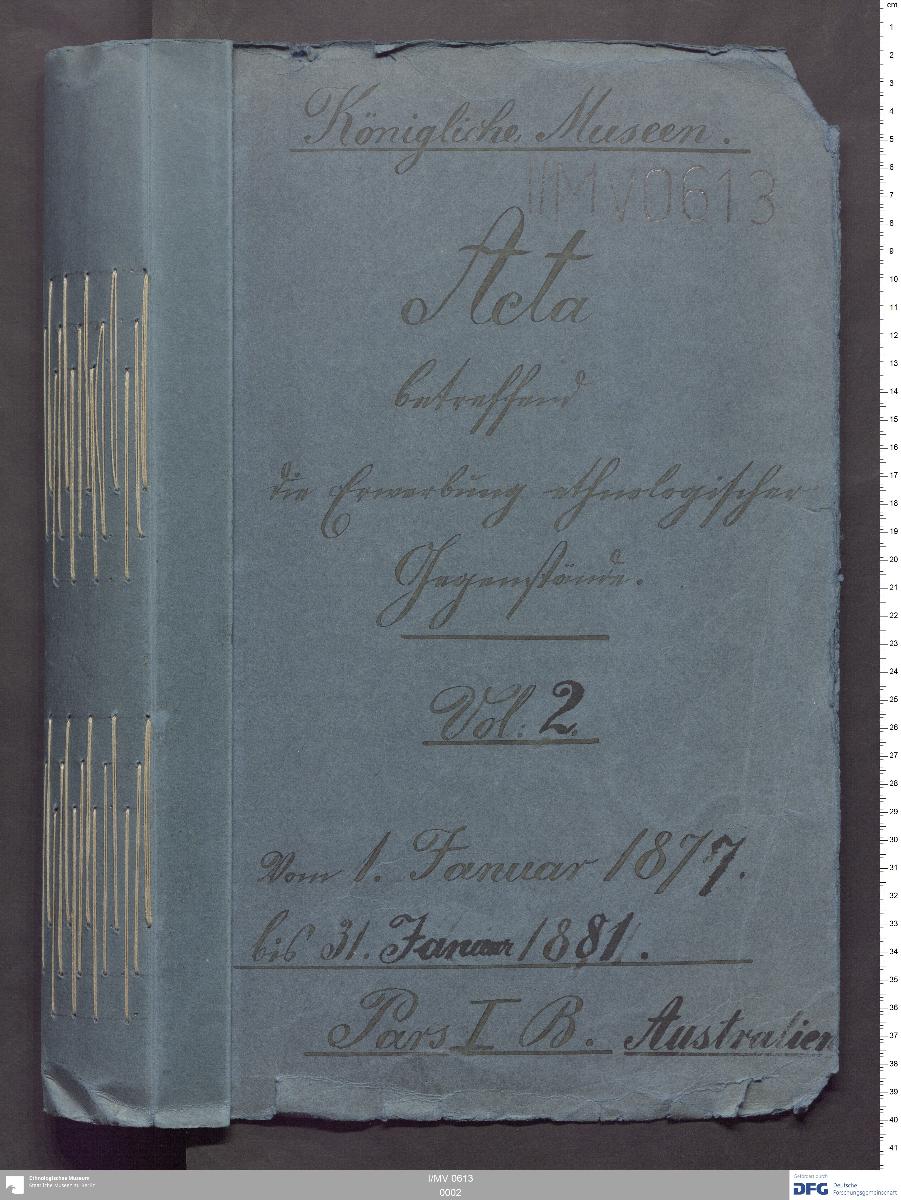 Königliche Museen.
I/MV 0613
Acta
betreffend
die Erwerbung ethnologischer
Gegenstände.
Vol: 2.
Vom 1. Januar 1877.
bis 31. Januar 1881.
Pars I B. Australien
cm
1
2
3
4
5
6
7
8
9
10
11
12
13
14
15
16
17
18
19
20
21
22
23
24
25
26
27
28
29
30
31
32
33
34
35
36
37
38
39
40
41
Ethnologisches Museum
Staatliche Museen zu Berlin
I/MV 0613
0002
Gefördert durch
DFG Deutsche
Forschungsgemeinschaft